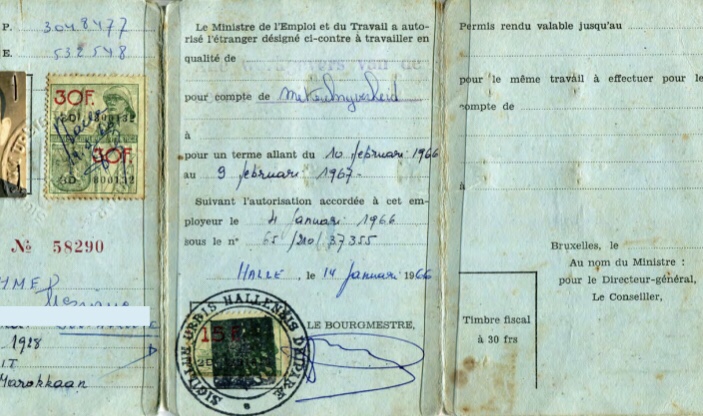 P. 3048477
E. 532548
30F.
30F.
000132
Nº 58290
1928
Marokkaan
Le Ministre de l'Emploi et du Travail a auto-
risé l'étranger désigné ci-contre à travailler en
qualité de
pour compte de
à
pour un terme allant du 10 februari 1966
au 9 februari 1967.
Suivant l'autorisation accordée à cet em-
ployeur le 4 januari 1966
sous le nº 65/210/37355
HALLE, le 14 januari 1966
LE BOURGMESTRE,
15F
SIGILLUM URBIS HALLENSIS DEIPARÆ
Permis rendu valable jusqu'au
pour le même travail à effectuer pour le
compte de
à
Bruxelles, le
Au nom du Ministre :
pour le Directeur-général,
Le Conseiller,
Timbre fiscal
à 30 frs